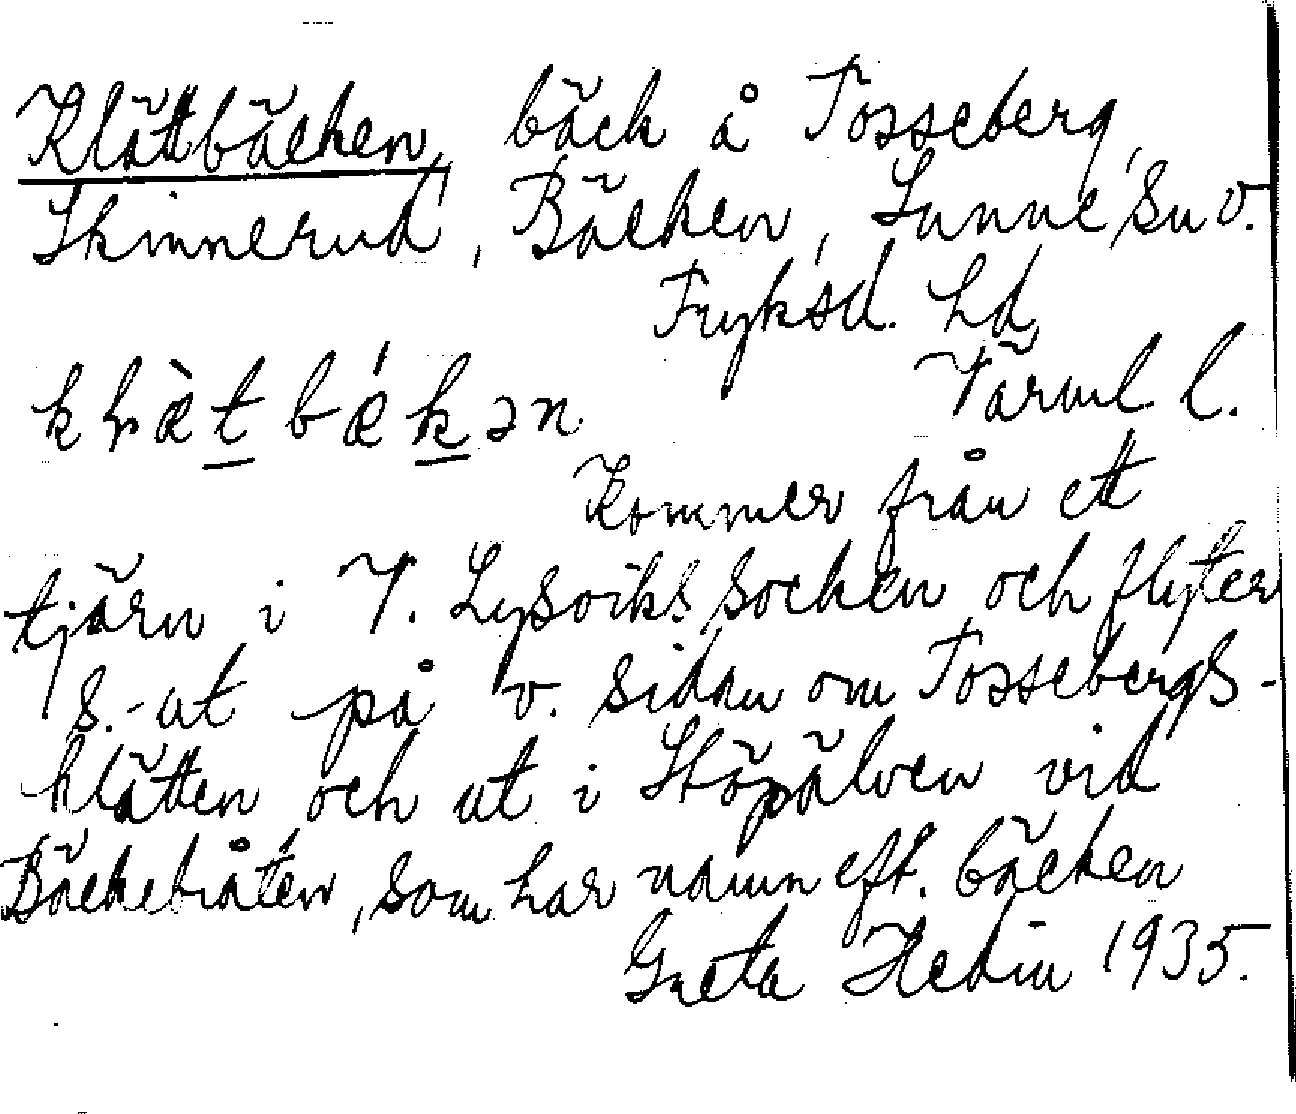 Klättbäcken, bäck å Tosseberg,
Skinnerud, Bäcken, Sunne sn v.
Fryksd. hd,
Värml l.
kḷæ̀t bǽkən
Kommer från ett
tjärn i V. Lysviks socken och flyter
s.-ut på v. sidan om Tossebergs-
klätten och ut i Stöpälven vid
Bäckebråten, som har namn eft. bäcken
Greta Hedin 1935.